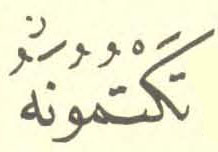 تَكْتُمُونَهُ